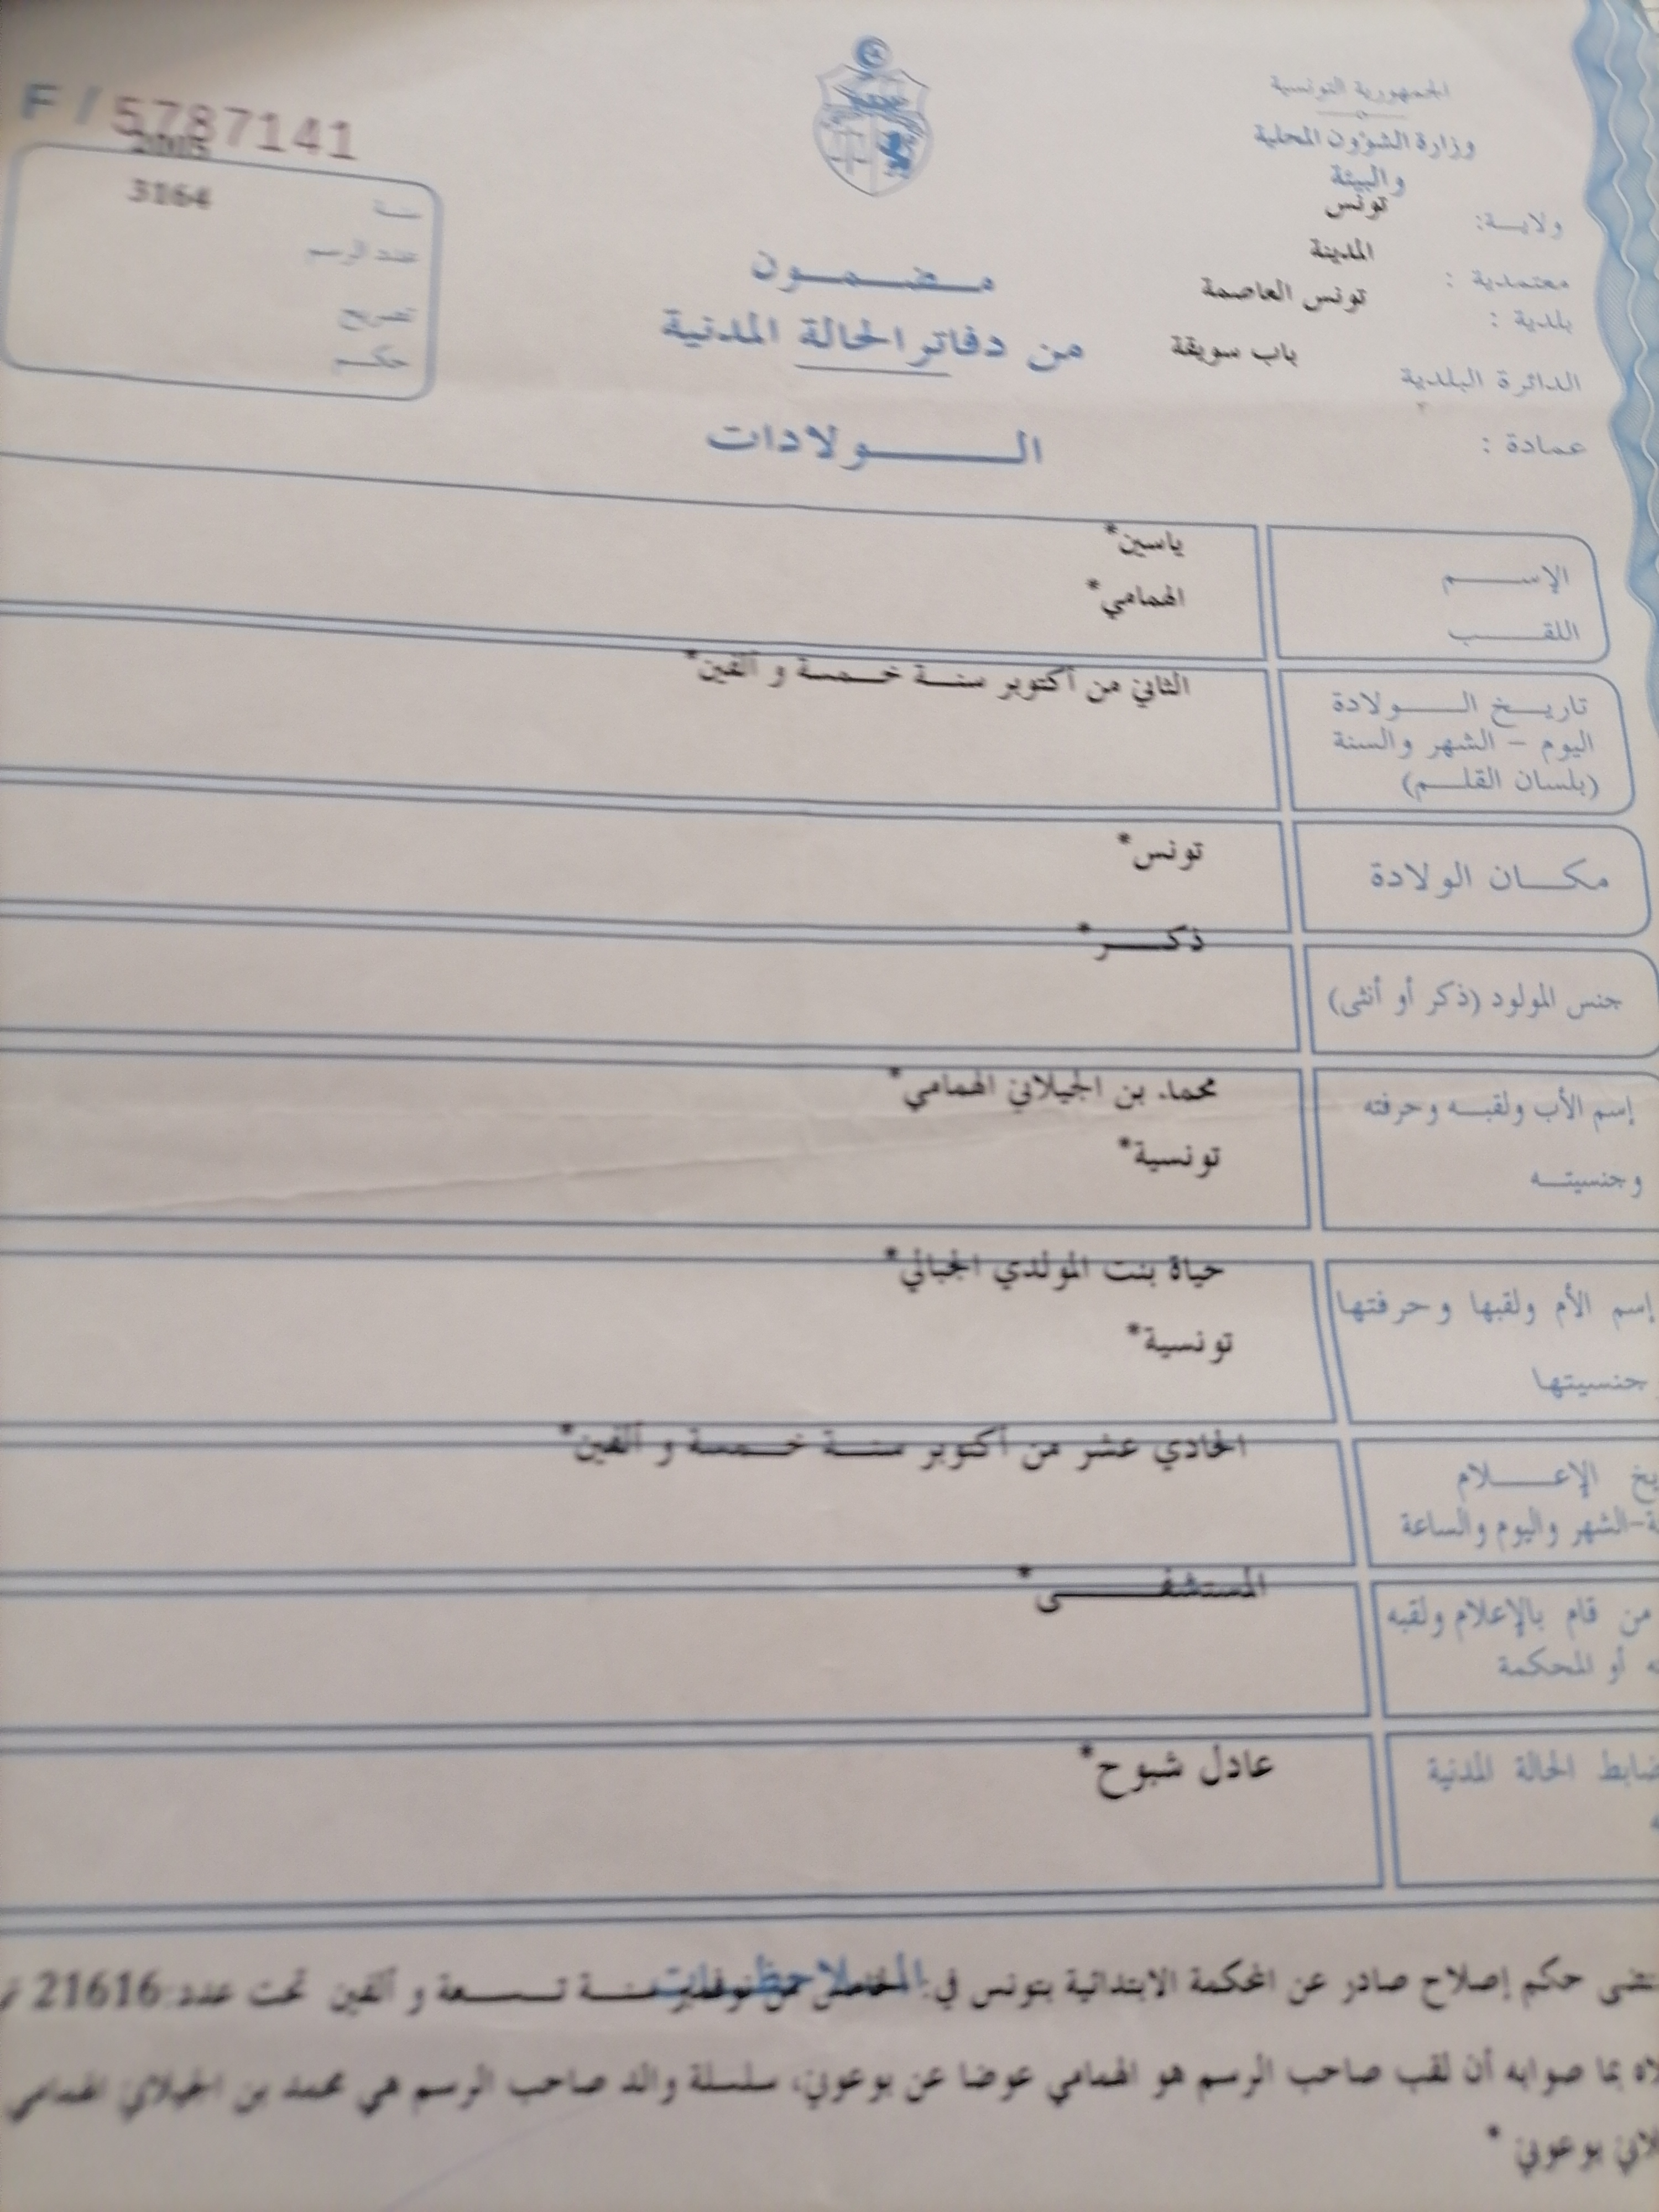 الجمهورية التونسية
وزارة الشؤون المحلية
والبيئة
ولايــة: تونس
معتمدية : المدينة
بلدية : تونس العاصمة
الدائرة البلدية باب سويقة
عمادة :
F / 5787141
2005
سنة 3164
عدد الرسم
تصريح
حكم
مضمون
من دفاتر الحالة المدنية
الولادات
الإسم ياسين*
اللقب الهمامي*
تاريخ الولادة الثاني من أكتوبر سنة خمسة و ألفين*
اليوم - الشهر والسنة
(بلسان القلم)
مكان الولادة تونس*
ذكر*
جنس المولود (ذكر أو أنثى)
إسم الأب ولقبه وحرفته محمد بن الجيلاني الهمامي*
وجنسيته تونسية*
إسم الأم ولقبها وحرفتها حياة بنت المولدي الجبالي*
جنسيتها تونسية*
الحادي عشر من أكتوبر سنة خمسة و ألفين*
الإعلام
الشهر واليوم والساعة
المستشفى*
من قام بالإعلام ولقبه
أو المحكمة
ضابط الحالة المدنية عادل شبوح*
الملاحظات
حكم إصلاح صادر عن المحكمة الابتدائية بتونس في: الخامس من نوفمبر سنة تسعة و ألفين تحت عدد: 21616
بما صوابه أن لقب صاحب الرسم هو الهمامي عوضا عن بوعوني، سلسلة والد صاحب الرسم هي محمد بن الجيلاني الهمامي
بوعوني *